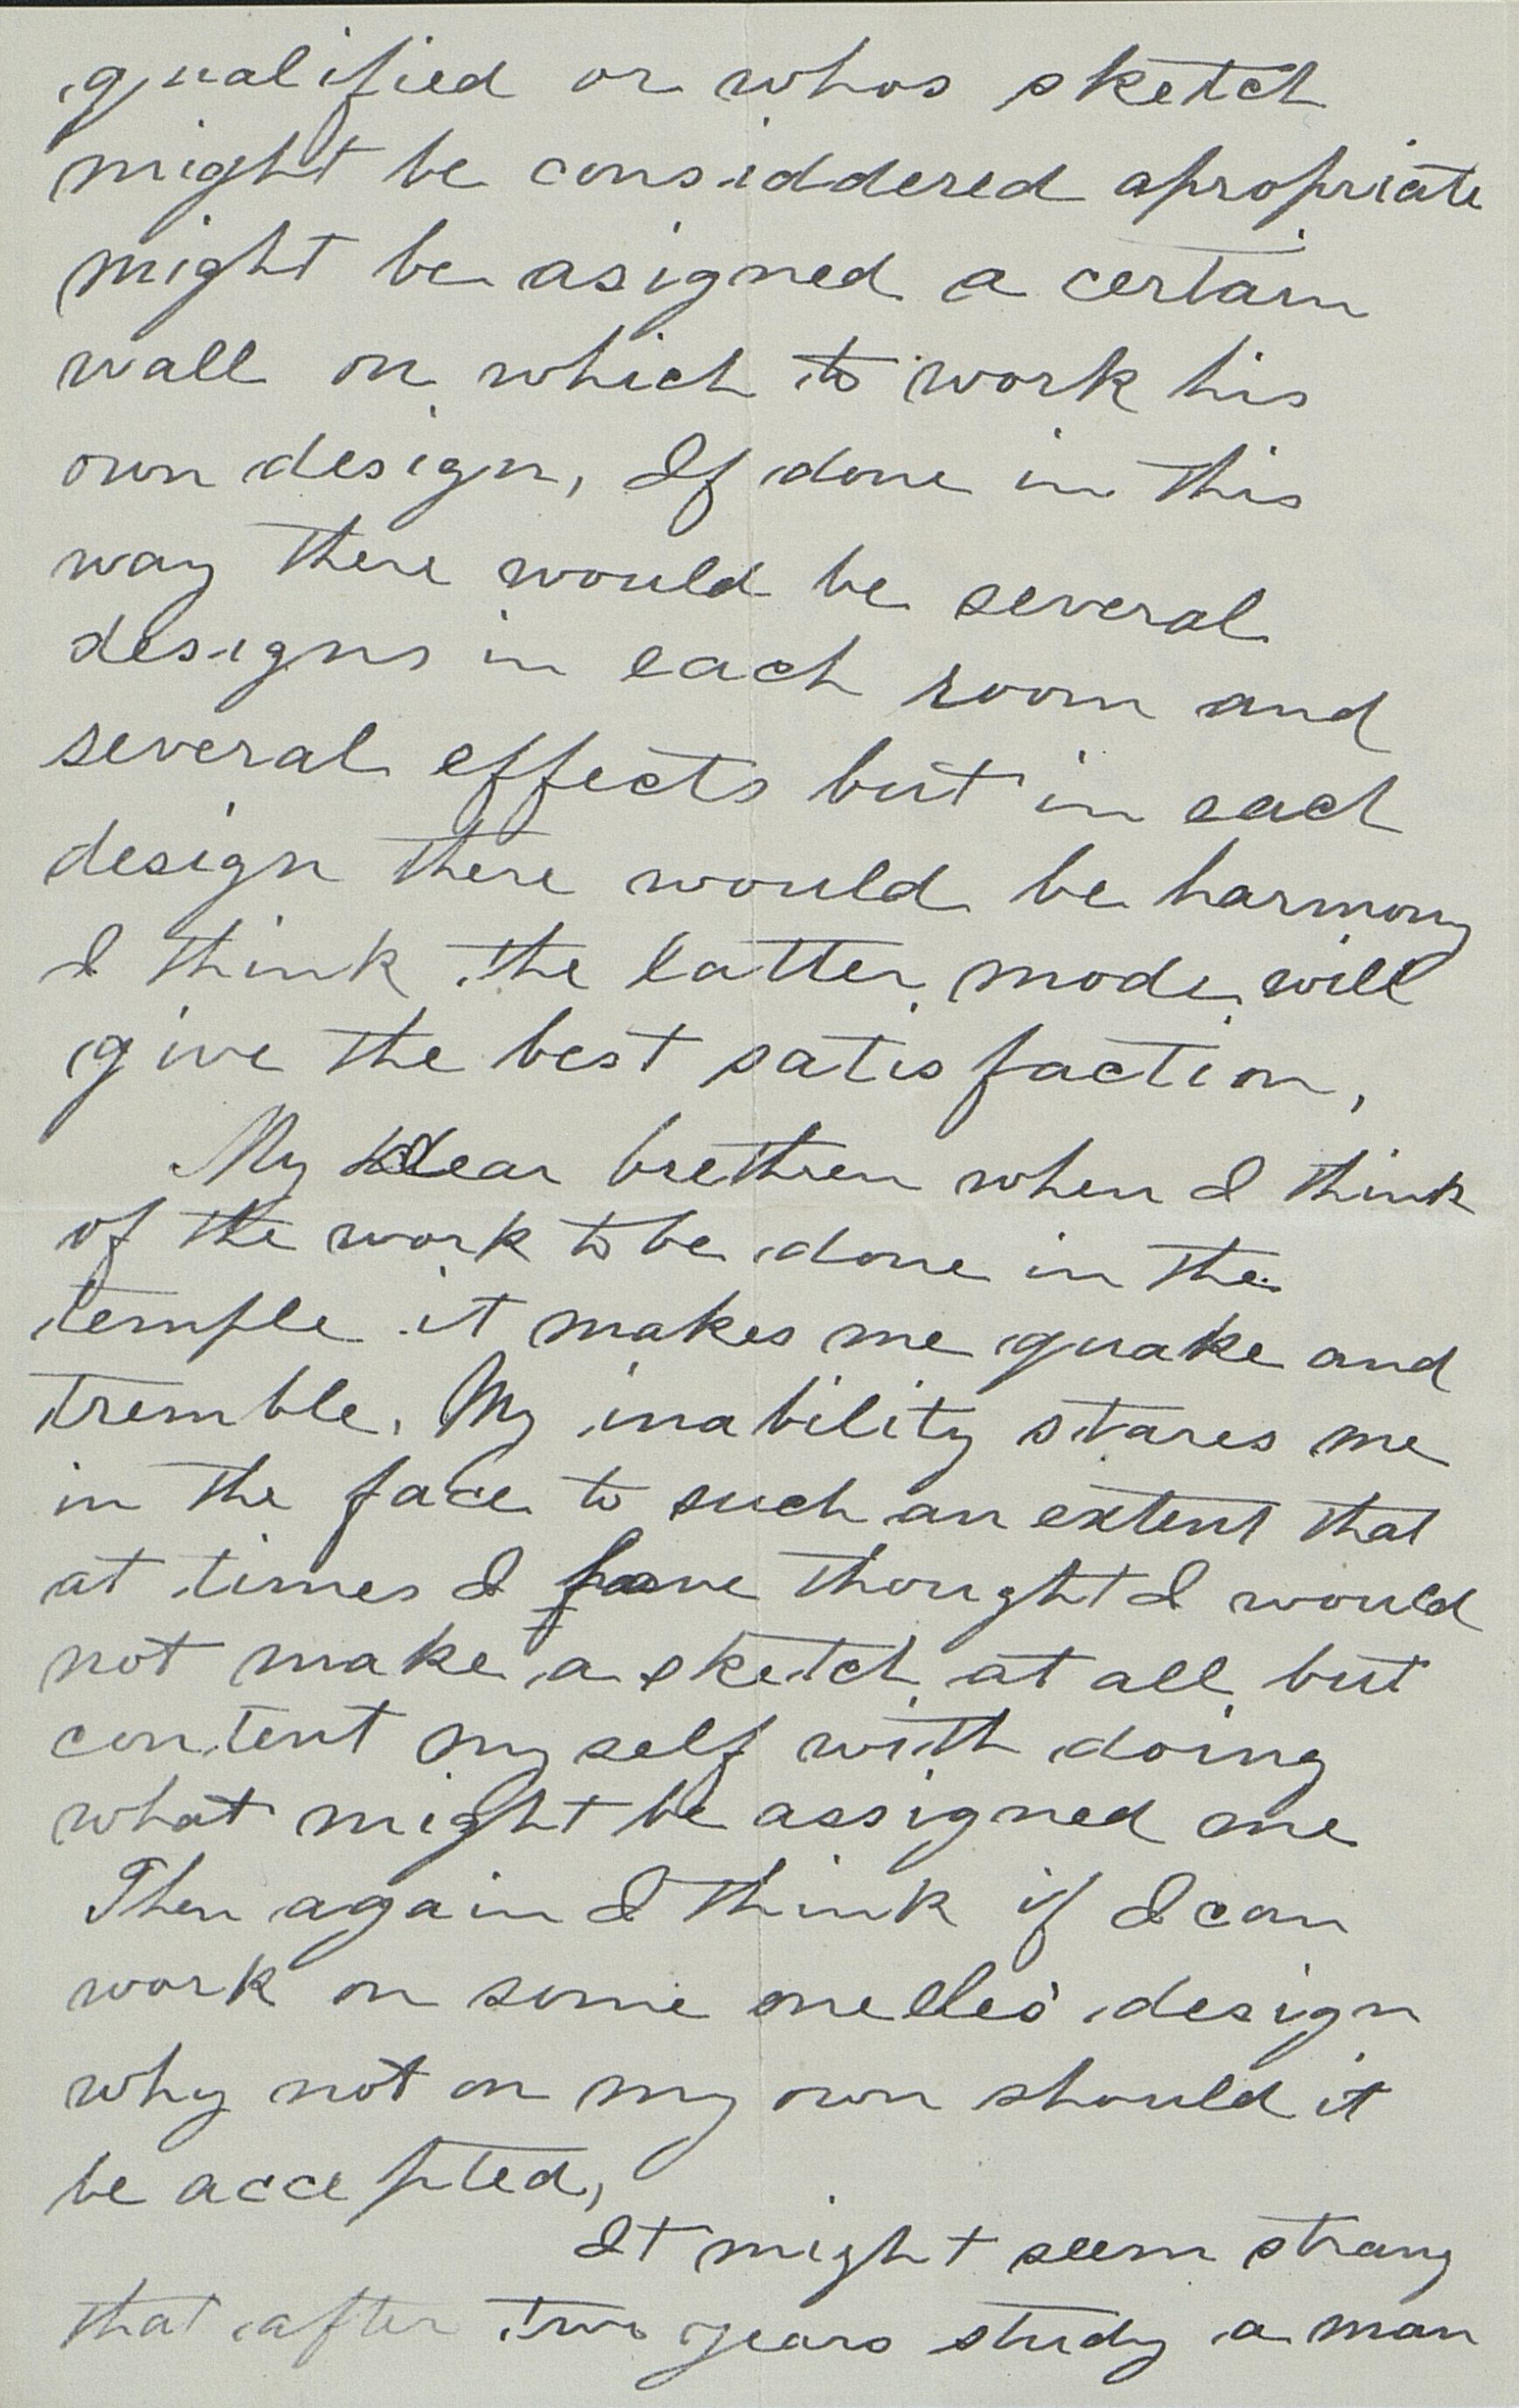 qualified or whos sketch
might be considdered apropriate
might be asigned a certain
wall on which to work his
own design, If done in this
way there would be several
designs in each room and
several effects but in each
design there would be harmony
I think the latter mode will
give the best satisfaction,
My dear brethren when I think
of the work to be done in the
temple it makes me quake and
tremble. My inability stares me
in the face to such an extent that
at times I have thought I would
not make a sketch at all but
content myself with doing
what might be assigned me
Then again I think if I can
work on some one elles' design
why not on my own should it
be accepted,
It might seem strang
that after two years study a man